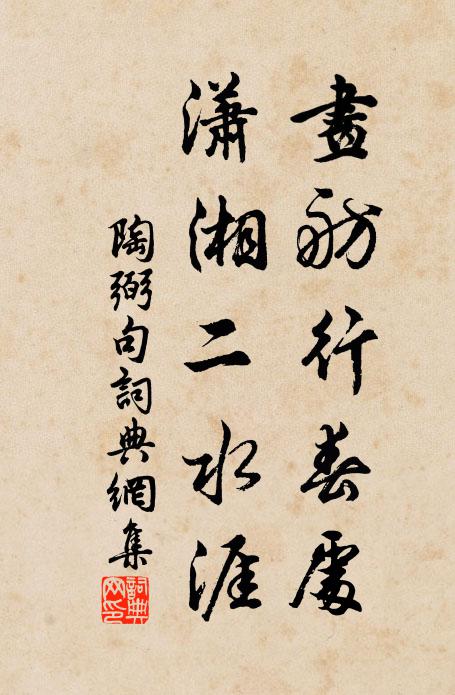 畫舫行春處
瀟湘二水涯
陶弼句詞典網集
詞典網印